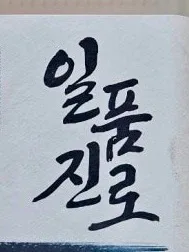 일품
진로